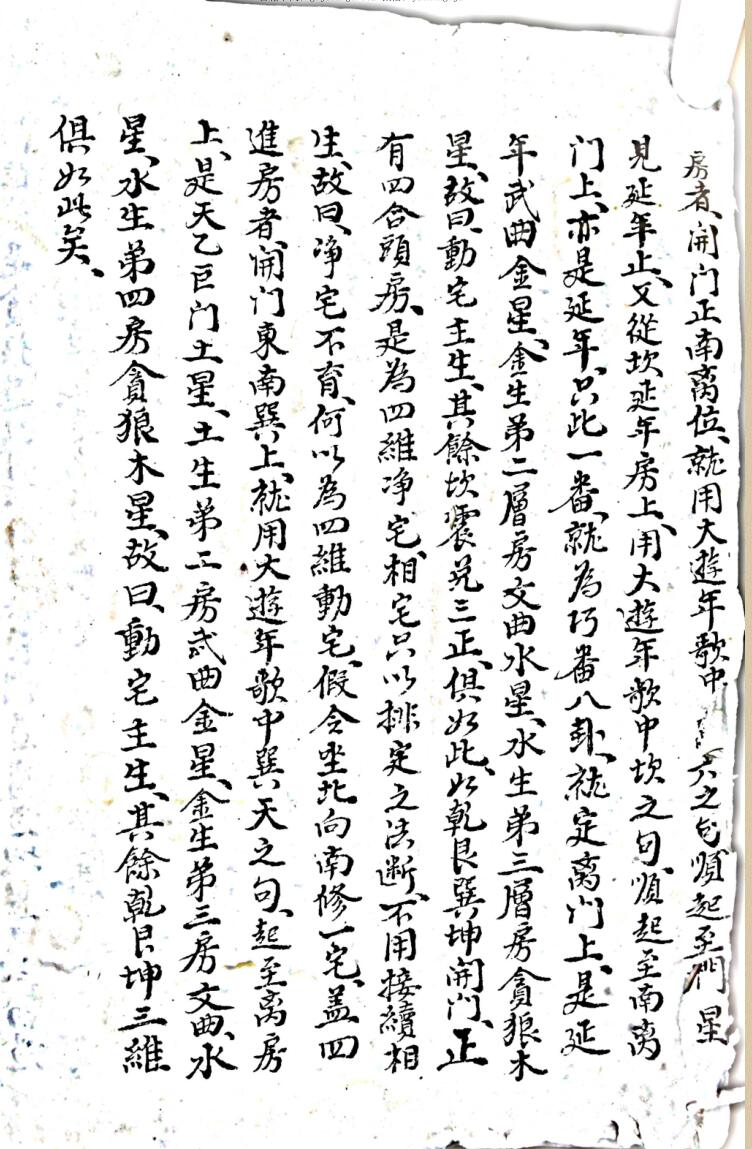 房者、開门正南离位、就用大遊年歌中六之句順起至門星
見延年止、又從坎延年房上、用大遊年歌中坎之句順起至南离
门上、亦是延年、只此一番、就為巧番八卦、就定离门上、是延
年武曲金星、金生第二層房文曲水星、水生第三層房貪狼木
星、故曰、動宅主生、其餘坎震兑三正、俱如此、如乾艮巽坤開门、正
有四合頭房、是為四維净宅、相宅只以排定之法断、不用接續相
生、故曰、净宅不育、何以為四維動宅、假令坐北向南修一宅、盖四
進房者、開门東南巽上、就用大遊年歌中巽天之句、起至离房
上、是天乙巨门土星、土生第二房武曲金星、金生第三房文曲、水
星、水生第四房貪狼木星、故曰、動宅主生、其餘乾艮坤三維
俱如此矣、